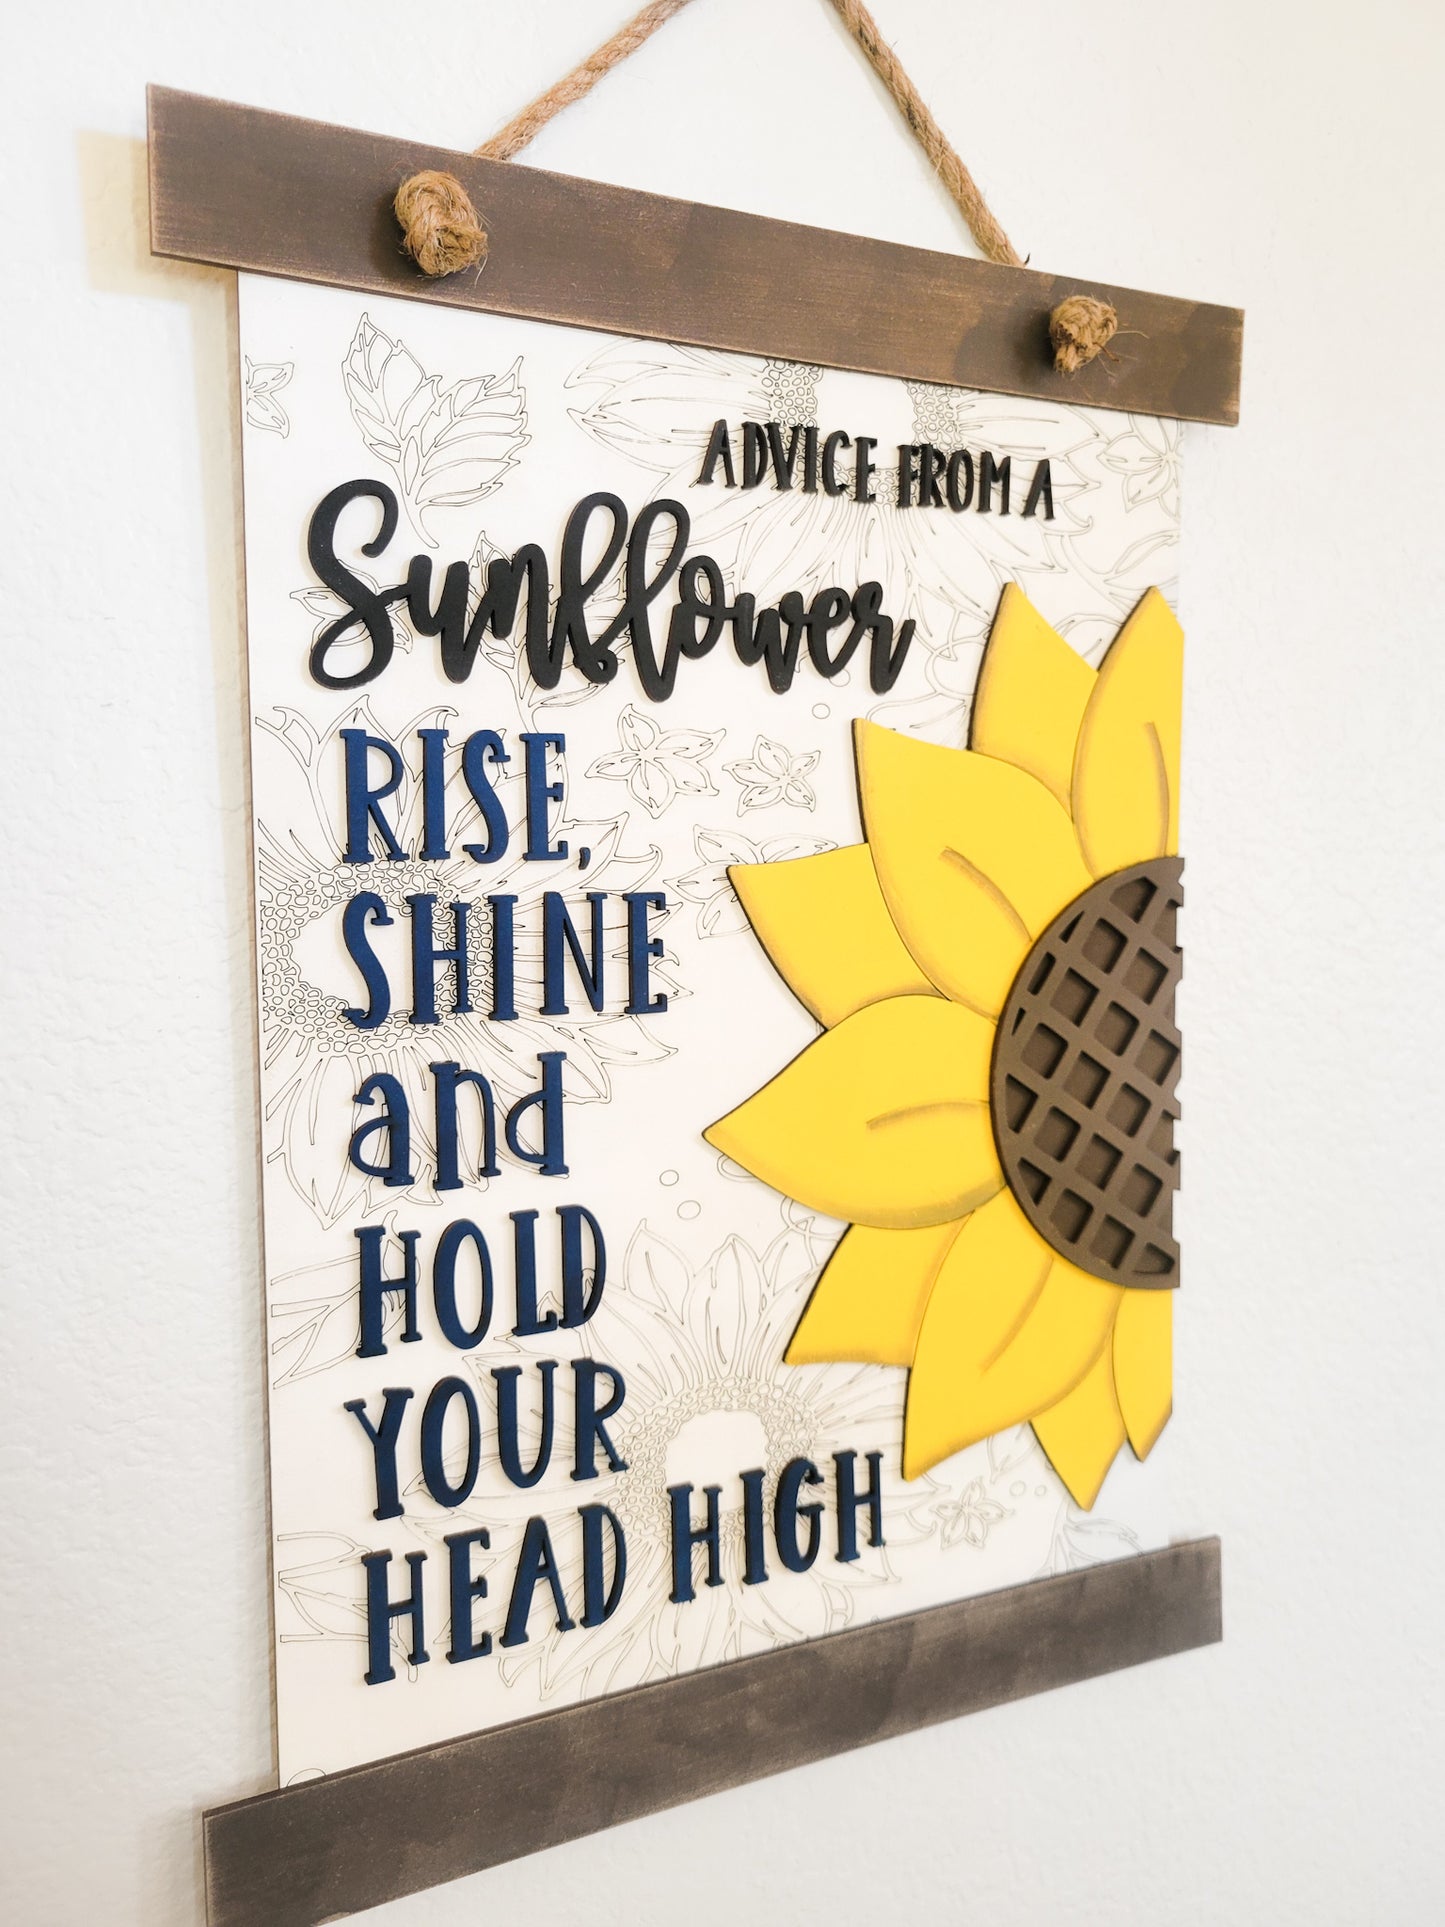 ADVICE FROM A
Sunflower
RISE,
SHINE
and
HOLD
YOUR
HEAD HIGH